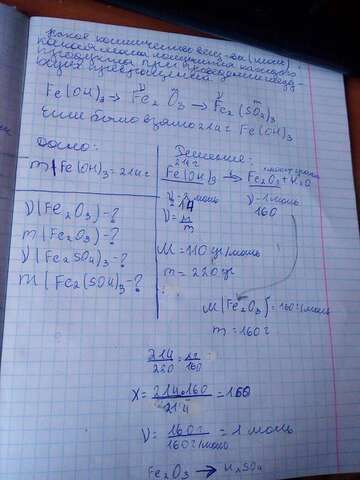 Какое количество вещ-ва (моль)
какая масса получится каждого
продукта при проведении след-
ующих превращений
Fe(OH)3 → Fe2O3 → Fe2(SO4)3
если было взято 214г Fe(OH)3
Дано:
m(Fe(OH)3 = 214г
ν(Fe2O3) - ?
m(Fe2O3) - ?
ν(Fe2SO4)3 - ?
m(Fe2(SO4)3 - ?
Решение:
214г
Fe(OH)3 → Fe2O3 + H2O
ν - 2 моль
ν - 1 моль
160
ν = m
M = 110 гр/моль
m = 220 гр
M(Fe2O3) = 160 г/моль
m = 160г
214/220 = xг/160
x = 214·160/214 = 160
ν = 160г/160г/моль = 1 моль
Fe2O3 → H2SO4